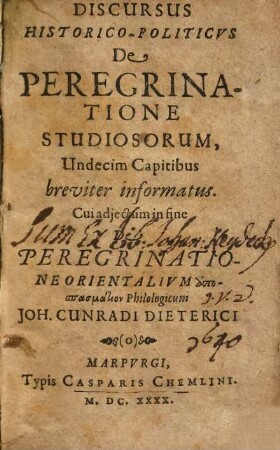 DISCURSUS
HISTORICO-POLITICVS
De
PEREGRINA-
TIONE
STUDIOSORUM,
Undecim Capitibus
breviter informatus.
Cui adjectum in fine
Sum Ex Lib. Johan.
PEREGRINATIO-
NE ORIENTALIUM ὑπο-
σπασμάτιον Philologicum
J.V.D.
JOH. CUNRADI DIETERICI
1640
MARPVRGI,
Typis CASPARIS CHEMLINI.
M. DC. XXXX.